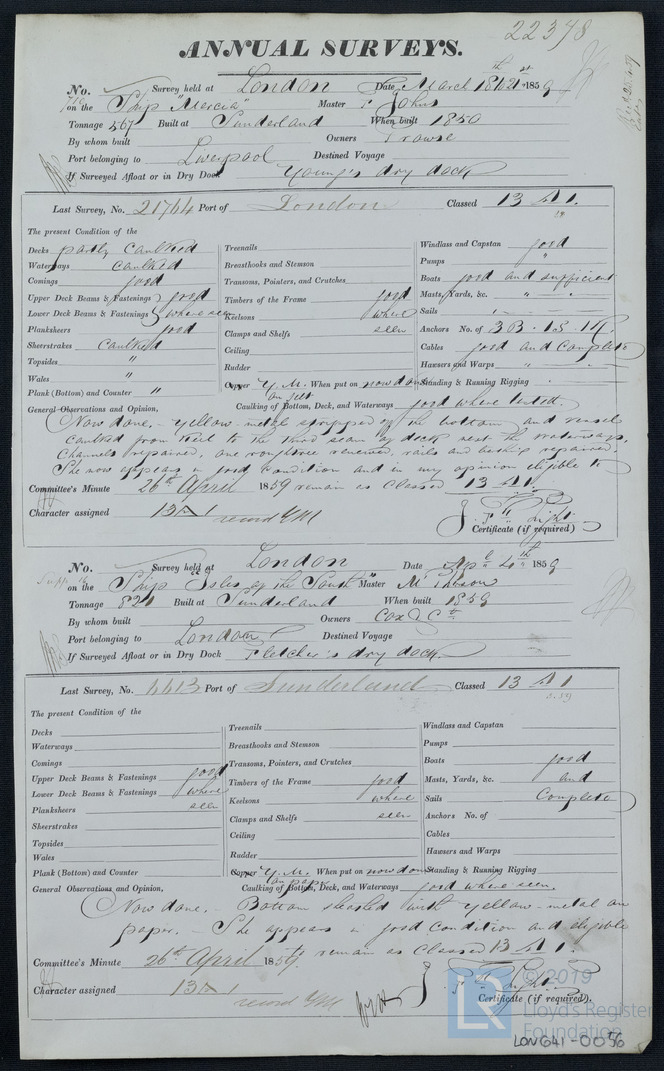 22378
ANNUAL SURVEYS.
No. Survey held at London Date March 18th 21st 1859
on the Ship "Mercia" Master T Johns
Tonnage 567 Built at Sunderland When built 1850
By whom built Owners Prowse
Port belonging to Liverpool Destined Voyage
If Surveyed Afloat or in Dry Dock Young's dry dock
Last Survey, No. 21744 Port of London Classed 13 A 1.
The present Condition of the
Decks partly Caulked
Waterways Caulked
Comings good
Upper Deck Beams & Fastenings good
Lower Deck Beams & Fastenings where seen
Planksheers good
Sheerstrakes Caulked
Topsides "
Wales "
Plank (Bottom) and Counter "
Treenails
Breasthooks and Stemson
Transoms, Pointers, and Crutches
Timbers of the Frame good
Keelsons where
Clamps and Shelfs seen
Ceiling
Rudder
Copper Y.M. When put on now done
on felt
Caulking of Bottom, Deck, and Waterways good where tested.
Windlass and Capstan good
Pumps "
Boats good and sufficient
Masts, Yards, &c. " "
Sails " "
Anchors No. of 3 B. 1 S. 1 K.
Cables good and Complete
Hawsers and Warps " "
Standing & Running Rigging " "
General Observations and Opinion,
Now done, - yellow-metal stripped off the bottom and vessel
caulked from keel to the third seam of deck next the waterways,
Channels repaired, one roughtree renewed, rails and beading repaired.
She now appears in good Condition and in my opinion eligible to
Committee's Minute 26th April 1859 remain as Classed 13 A 1.
Character assigned 13 A 1 record YM
Certificate (if required)
No. Survey held at London Date Ap 4th 1859
on the Ship "Isles of the South" Master
Tonnage 821 Built at Sunderland When built 1859
By whom built Owners Cox & Co
Port belonging to London Destined Voyage
If Surveyed Afloat or in Dry Dock Fletcher's dry dock.
Last Survey, No. 4413 Port of Sunderland Classed 13 A 1
3.59
The present Condition of the
Decks
Waterways
Comings
Upper Deck Beams & Fastenings good
Lower Deck Beams & Fastenings where
Planksheers seen
Sheerstrakes
Topsides
Wales
Plank (Bottom) and Counter
Treenails
Breasthooks and Stemson
Transoms, Pointers, and Crutches
Timbers of the Frame good
Keelsons where
Clamps and Shelfs seen
Ceiling
Rudder
Copper Y.M. When put on now done
on paper
Caulking of Bottom, Deck, and Waterways good where seen.
Windlass and Capstan
Pumps
Boats good
Masts, Yards, &c. and
Sails Complete
Anchors No. of
Cables
Hawsers and Warps
Standing & Running Rigging
General Observations and Opinion,
Now done. - Bottom sheathed with yellow-metal on
paper. - She appears in good Condition and eligible
to remain as Classed 13 A 1.
Committee's Minute 26th April 1859.
Character assigned 13 A 1 record YM
Certificate (if required).
© 2019
LR Lloyd's Register
Foundation
LON641-0056